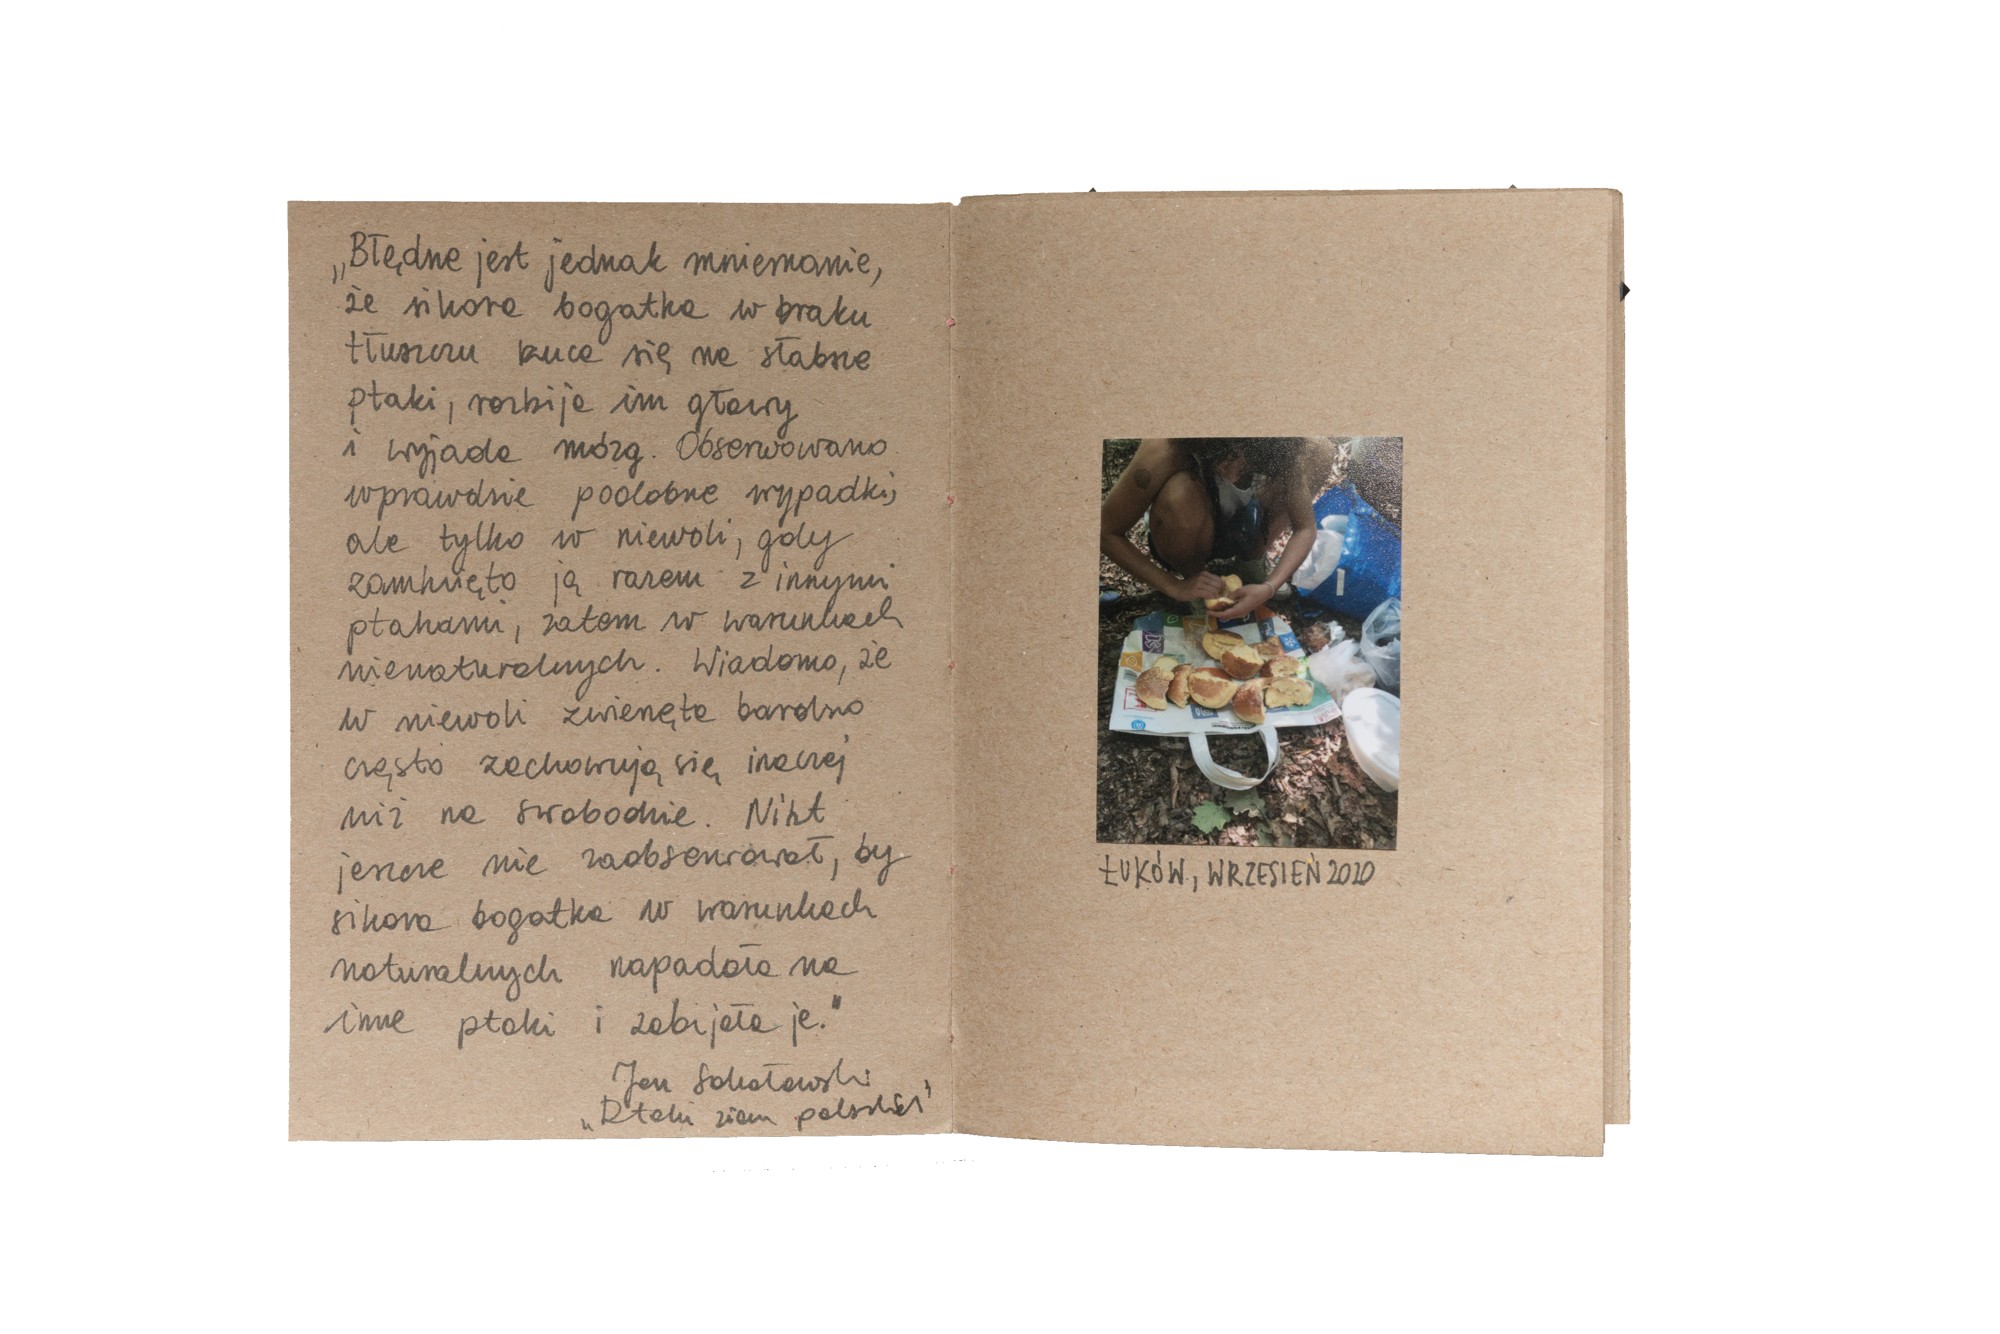 „Błędne jest jednak mniemanie,
że sikora bogatka w braku
tłuszczu rzuca się na słabsze
ptaki, rozbija im głowy
i wyjada mózg. Obserwowano
wprawdzie podobne wypadki,
ale tylko w niewoli, gdy
zamknięto ją razem z innymi
ptakami, zatem w warunkach
nienaturalnych. Wiadomo, że
w niewoli zwierzęta bardzo
często zachowują się inaczej
niż na swobodzie. Nikt
jeszcze nie zaobserwował, by
sikora bogatka w warunkach
naturalnych napadała na
inne ptaki i zabijała je."
Jan Sokołowski
„Ptaki ziem polskich"
ŁUKÓW, WRZESIEŃ 2020